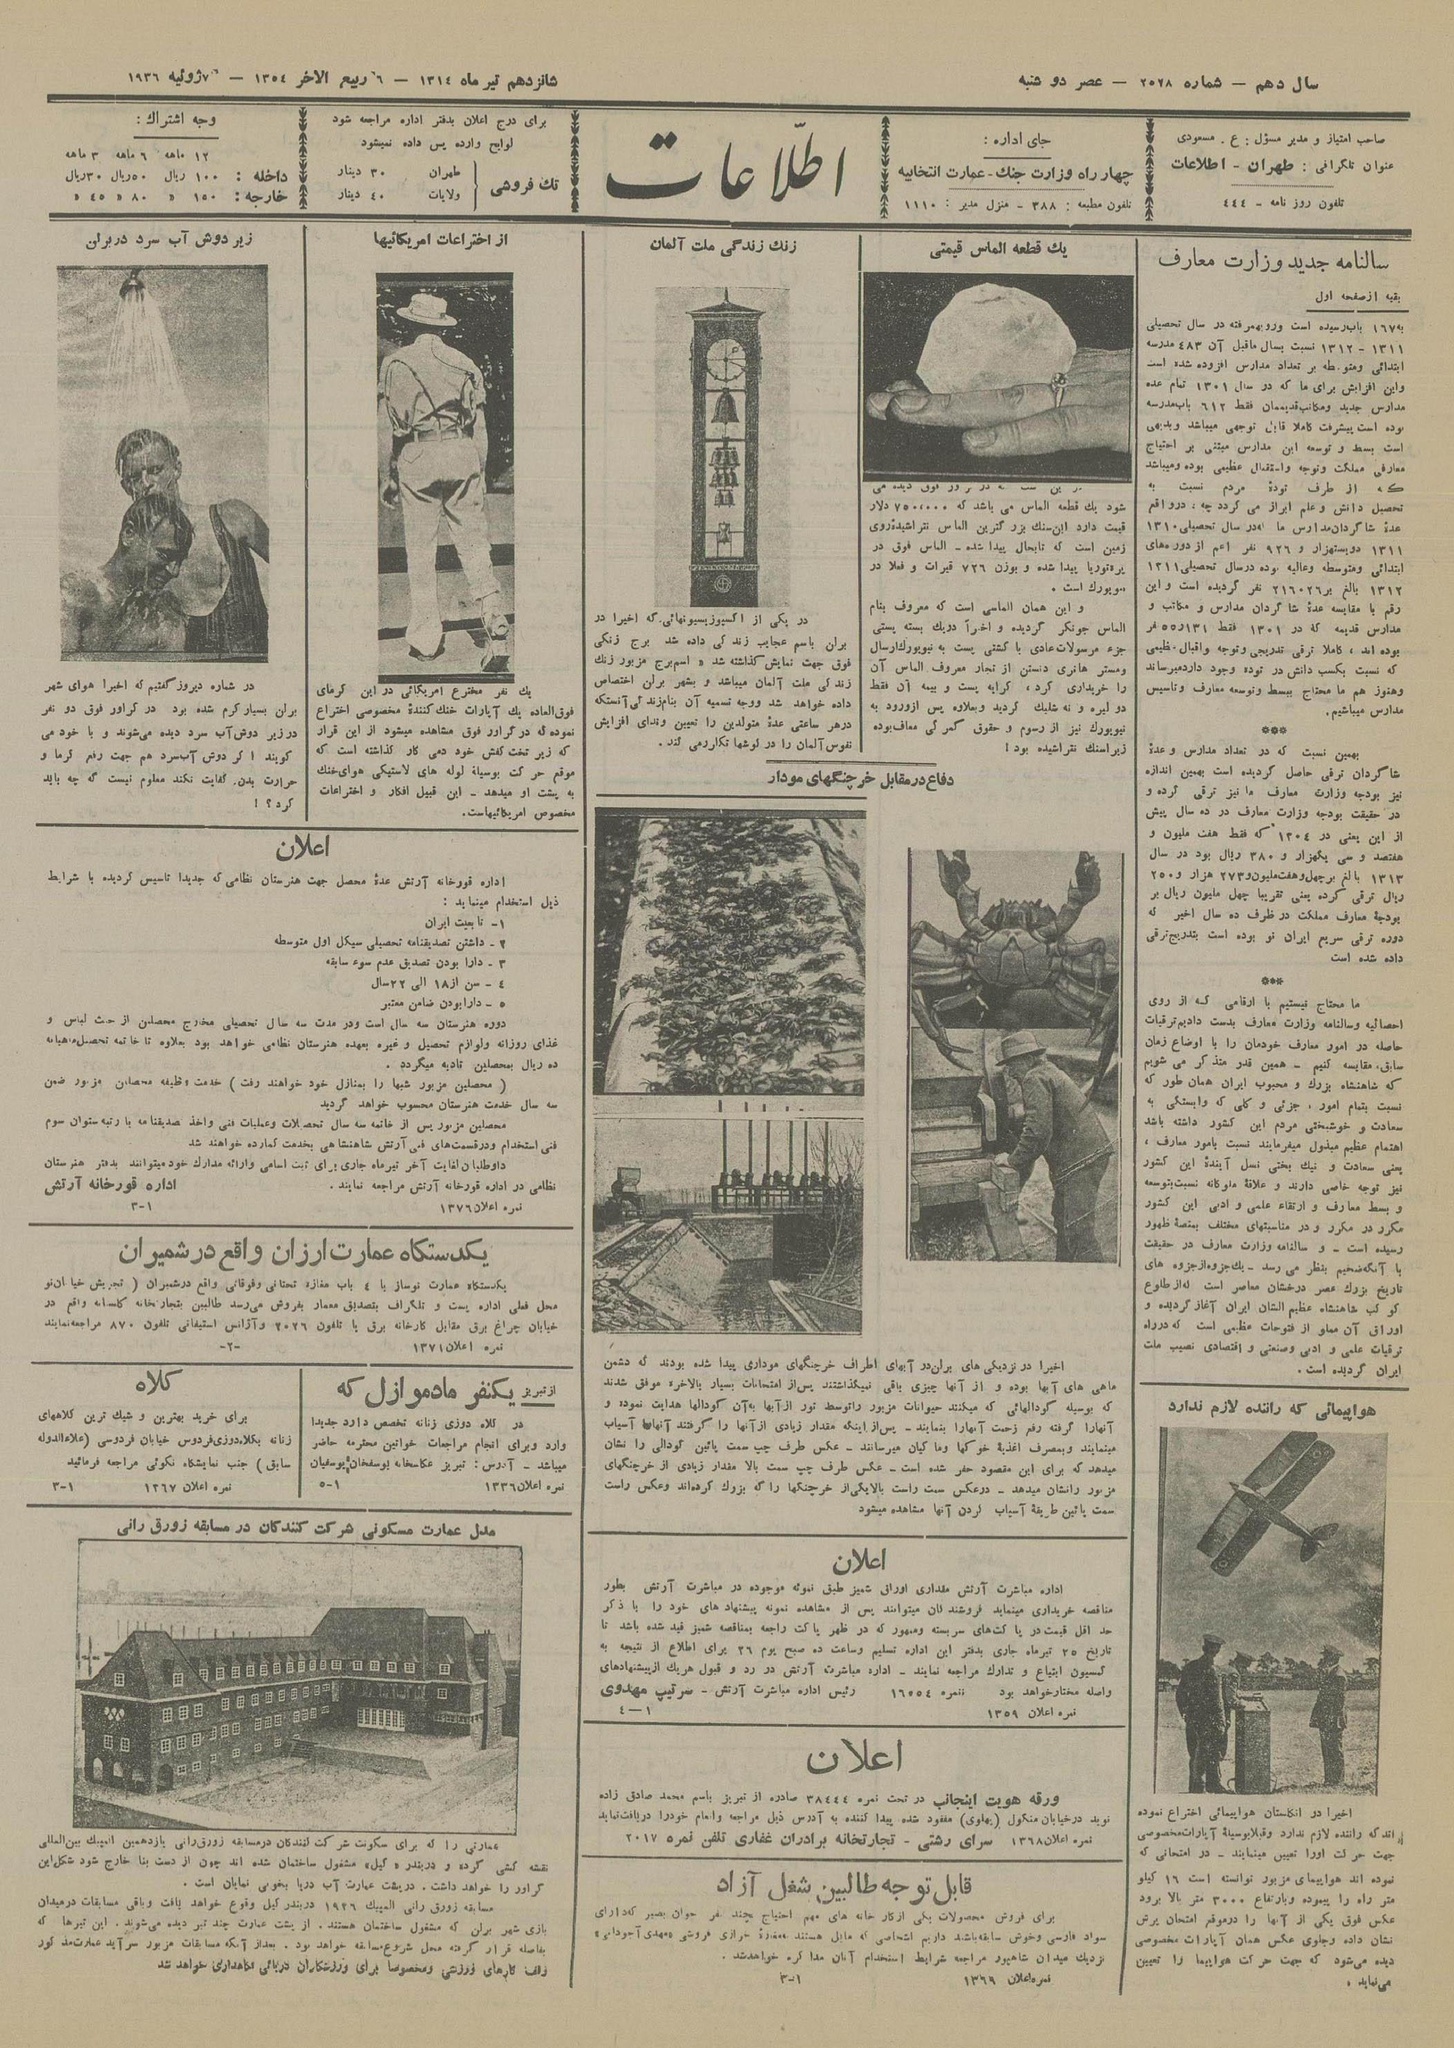 سال دهم — شماره ۲۵۲۸ — عصر دو شنبه
شانزدهم تیر ماه ۱۳۱۴ — ٦ ربیع الاخر ۱۳۵٤ — ۷ ژوئیه ۱۹۳٦
صاحب امتیاز و مدیر مسؤل : ع . مسعودی
عنوان تلگرافی : طهران - اطلاعات
تلفون روز نامه - ٤٤٤
جای اداره :
چهار راه وزارت جنك - عمارت انتخابیه
تلفون مطبعه : ۳۸۸ - منزل مدیر : ۱۱۱۰
اطلّاعات
برای درج اعلان بدفتر اداره مراجعه شود
لوایح وارده پس داده نمیشود
تك فروشی
طهران ۳۰ دینار
ولایات ٤۰ دینار
وجه اشتراك :
۱۲ ماهه ٦ ماهه ۳ ماهه
داخله : ۱۰۰ ریال ۵۰ریال ۳۰ریال
خارجه : ۱۵۰ « ۸۰ « ٤۵ «
سالنامه جدید وزارت معارف
بقیه از صفحه اول
به۱٦۷ باب رسیده است ورویهمرفته در سال تحصیلی
۱۳۱۱ - ۱۳۱۲ نسبت بسال ماقبل آن ٤۸۳ مدرسه
ابتدائی ومتوسطه بر تعداد مدارس افزوده شده است
واین افزایش برای ما که در سال ۱۳۰۱ تمام عده
مدارس جدید ومکاتب قدیممان فقط ٦۱۲ باب مدرسه
بوده است پیشرفت کاملا قابل توجهی میباشد وبدیهی
است بسط و توسعه این مدارس مبتنی بر احتیاج
معارفی مملکت وتوجه واستقبال عظیمی بوده ومیباشد
که از طرف تودهٔ مردم نسبت به
تحصیل دانش وعلم ابراز می گردد چه ، درواقع
عدهٔ شاگردان مدارس ما که در سال تحصیلی ۱۳۱۰
۱۳۱۱ دویستهزار و ۹۲٦ نفر اعم از دوره های
ابتدائی ومتوسطه وعالیه بوده درسال تحصیلی ۱۳۱۱
۱۳۱۲ بالغ بر ۲۱٦۰۲٦ نفر گردیده است و این
رقم با مقایسه عدهٔ شاگردان مدارس و مکاتب و
مدارس قدیمه که در ۱۳۰۱ فقط ۵۵ر۱۳۱ نفر
بوده اند ، کاملا ترقی تدریجی وتوجه واقبال عظیمی
که نسبت بکسب دانش در توده وجود دارد میرساند
وهنوز هم ما محتاج ببسط وتوسعه معارف وتاسیس
مدارس میباشیم.
***
بهمین نسبت که در تعداد مدارس و عدهٔ
شاگردان ترقی حاصل گردیده است بهمین اندازه
نیز بودجه وزارت معارف ما نیز ترقی کرده و
در حقیقت بودجه وزارت معارف در ده سال پیش
از این یعنی در ۱۳۰٤ که فقط هفت ملیون و
هفتصد و سی یکهزار و ۳۸۰ ریال بود در سال
۱۳۱۳ بالغ بر چهل وهفت ملیون و ۲۷۳ هزار و ۲۵۰
ریال ترقی کرده یعنی تقریبا چهل ملیون ریال بر
بودجهٔ معارف مملکت در ظرف ده سال اخیر که
دوره ترقی سریع ایران نو بوده است بتدریج ترقی
داده شده است
***
ما محتاج نیستیم با ارقامی که از روی
احصائیه وسالنامه وزارت معارف بدست دادیم ترقیات
حاصله در امور معارف خودمان را با اوضاع زمان
سابق، مقایسه کنیم - همین قدر متذکر می شویم
که شاهنشاه بزرگ و محبوب ایران همان طور که
نسبت بتمام امور ، جزئی و کلی که وابستگی به
سعادت و خوشبختی مردم این کشور داشته باشد
اهتمام عظیم مبذول میفرمایند نسبت بامور معارف ،
یعنی سعادت و نیك بختی نسل آیندهٔ این کشور
نیز توجه خاصی دارند و علاقهٔ ملوکانه نسبت بتوسعه
و بسط معارف و ارتقاء علمی و ادبی این کشور
مکرر در مکرر و در مناسبتهای مختلف بمنصهٔ ظهور
رسیده است - و سالنامه وزارت معارف در حقیقت
با آنکه ضخیم بنظر می رسد - یك جزوه از جزوه های
تاریخ بزرك عصر درخشان معاصر است که از طلوع
کوکب شاهنشاه عظیم الشان ایران آغاز گردیده و
اوراق آن مملو از فتوحات عظیمی است که در راه
ترقیات علمی و ادبی وصنعتی و اقتصادی نصیب ملت
ایران گردیده است .
هواپیمائی که راننده لازم ندارد
اخیرا در انگلستان هواپیمائی اختراع نموده
اند که راننده لازم ندارد وقبلا بوسیلهٔ آپارات مخصوصی
جهت حرکت اورا تعیین مینمایند - در امتحانی که
نموده اند هواپیمای مزبور توانسته است ۱٦ کیلو
متر راه را پیموده وبارتفاع ۳۰۰۰ متر بالا برود
عکس فوق یکی از آنها را در موقع امتحان پرش
نشان داده وجلوی عکس همان آپارات مخصوصی
دیده می شود که جهت حرکت هواپیما را تعیین
می نماید .
یك قطعه الماس قیمتی
شود یك قطعه الماس می باشد که ۷۵۰،۰۰۰ دلار
قیمت دارد این سنك بزرگترین الماس نتراشیدهٔ روی
زمین است که تابحال پیدا شده - الماس فوق در
پره توریا پیدا شده و بوزن ۷۲٦ قیرات و فعلا در
نیویورك است .
و این همان الماسی است که معروف بنام
الماس جونکر گردیده و اخیراً در یك بسته پستی
جزء مرسولات عادی با کشتی پست به نیویورك ارسال
ومستر هانری دنستن از تجار معروف الماس آن
را خریداری کرد ، کرایه پست و بیمه آن فقط
دو لیره و نه شلیك گردید وبعلاوه پس از ورود به
نیویورك نیز از رسوم و حقوق گمرکی معاف بوده
زیرا سنك نتراشیده بود !
زنك زندگی ملت آلمان
در یکی از اکسپوزیسیونهائی که اخیرا در
برلن باسم عجایب زندگی داده شد برج زنگی
فوق جهت نمایش گذاشته شد « اسم برج مزبور زنك
زندگی ملت آلمان میباشد و بشهر برلن اختصاص
داده خواهد شد ووجه تسمیه آن بنام زندگی آنستکه
در هر ساعتی عدهٔ متولدین را تعیین وندای افزایش
نفوس آلمان را در گوشها تکرار می کند .
از اختراعات امریکائیها
یك نفر مخترع امریکائی در این گرمای
فوق العاده یك آپارات خنك کنندهٔ مخصوصی اختراع
نموده که در گراور فوق مشاهده میشود از این قرار
که زیر تخت کفش خود دمی کار گذاشته است که
موقع حرکت بوسیلهٔ لوله های لاستیکی هوای خنك
به پشت او میدهد - این قبیل افکار و اختراعات
مخصوص امریکائیهاست.
زیر دوش آب سرد در برلن
در شماره دیروز گفتیم که اخیرا هوای شهر
برلن بسیار گرم شده بود در گراور فوق دو نفر
در زیر دوش آب سرد دیده می شوند و با خود می
گویند اگر دوش آب سرد هم جهت رفع گرما و
حرارت بدن، کفایت نکند معلوم نیست که چه باید
کرد ؟ !
دفاع در مقابل خرچنگهای مودار
اخیرا در نزدیکی های برلن در آبهای اطراف خرچنگهای موداری پیدا شده بودند که دشمن
ماهی های آبها بوده و از آنها چیزی باقی نمیگذاشتند پس از امتحانات بسیار بالاخره موفق شدند
که بوسیله گودالهائی که میکنند حیوانات مزبور را توسط تور از آبها به آن گودالها هدایت نموده و
آنهارا گرفته رفع زحمت آنهارا بنمایند - پس از اینکه مقدار زیادی از آنها را گرفتند آنها را آسیاب
مینمایند وبمصرف اغذیهٔ خوکها وماکیان میرسانند - عکس طرف چپ سمت پائین گودالی را نشان
میدهد که برای این مقصود حفر شده است - عکس طرف چپ سمت بالا مقدار زیادی از خرچنگهای
مزبور را نشان میدهد - در عکس سمت راست بالا یکی از خرچنگها را که بزرك کرده اند وعکس راست
سمت پائین طریقهٔ آسیاب کردن آنها مشاهده میشود
اعلان
اداره مباشرت آرتش مقداری اوراق شمیز طبق نمونه موجوده در مباشرت آرتش بطور
مناقصه خریداری مینماید فروشندگان میتوانند پس از مشاهده نمونه پیشنهاد های خود را با ذکر
حد اقل قیمت در پاکت های سربسته وممهور که در ظهر پاکت راجعه بمناقصه شمیز قید شده باشد تا
تاریخ ۲۵ تیرماه جاری بدفتر این اداره تسلیم وساعت ده صبح یوم ۲٦ برای اطلاع از نتیجه به
کمسیون ابتیاع و تدارك مراجعه نمایند - اداره مباشرت آرتش در رد و قبول هریك از پیشنهادهای
واصله مختار خواهد بود نمره ۱٦۵۵٤ رئیس اداره مباشرت آرتش - سرتیپ مهدوی
نمره اعلان ۱۳۵۹ ۱—٤
اعلان
ورقه هویت اینجانب در تحت نمره ۳۸٤٤٤ صادره از تبریز باسم محمد صادق زاده
نوید در خیابان منگول (پهلوی) مفقود شده پیدا کننده به آدرس ذیل مراجعه وانعام خودرا دریافت نماید
نمره اعلان ۱۳٦۸ سرای رشتی - تجارتخانه برادران غفاری تلفن نمره ۲۰۱۷
قابل توجه طالبین شغل آزاد
برای فروش محصولات یکی از کارخانه های مهم احتیاج بچند نفر جوان بصیر که دارای
سواد فارسی وخوش سابقه باشد داریم اشخاصی که مایل هستند خرازی فروشی «مهدی آجودانی»
نزدیك میدان شاهپور مراجعه شرایط استخدام آنان مذاکره خواهد شد.
نمره اعلان ۱۳٦۹ ۱-۳
اعلان
اداره قورخانه آرتش عدهٔ محصل جهت هنرستان نظامی که جدیدا تاسیس گردیده با شرایط
ذیل استخدام مینماید :
۱- تابعیت ایران
۲ - داشتن تصدیقنامه تحصیلی سیکل اول متوسطه
۳ - دارا بودن تصدیق عدم سوء سابقه
٤ - سن از ۱۸ الی ۲۲ سال
۵ - دارا بودن ضامن معتبر
دوره هنرستان سه سال است ودر مدت سه سال تحصیلی مخارج محصلین از حیث لباس و
غذای روزانه ولوازم تحصیل و غیره بعهده هنرستان نظامی خواهد بود بعلاوه تا خاتمه تحصیل ماهیانه
ده ریال بمحصلین تادیه میگردد .
( محصلین مزبور شبها را بمنازل خود خواهند رفت ) خدمت وظیفه محصلین مزبور ضمن
سه سال خدمت هنرستان محسوب خواهد گردید
محصلین مزبور پس از خاتمه سه سال تحصیلات وعملیات فنی واخذ تصدیقنامه با رتبه ستوان سوم
فنی استخدام ودر قسمت های فنی آرتش شاهنشاهی بخدمت گمارده خواهند شد
داوطلبان لغایت آخر تیرماه جاری برای ثبت اسامی وارائه مدارك خود میتوانند بدفتر هنرستان
نظامی در اداره قورخانه آرتش مراجعه نمایند . اداره قورخانه آرتش
نمره اعلان ۱۳۷٦ ۱-۳
یکدستگاه عمارت ارزان واقع در شمیران
یکدستگاه عمارت نوساز با ٤ باب مغازه تحتانی وفوقانی واقع در شمیران ( تجریش خیابان نو
محل فعلی اداره پست و تلگراف بتصدیق معمار بفروش می رسد طالبین بتجارتخانه واقع در
خیابان چراغ برق مقابل کارخانه برق یا تلفون ۲۰۲٦ وآژانس استیفانی تلفون ۸۷۰ مراجعه نمایند
نمره اعلان ۱۳۷۱ -۲-
از تبریز یکنفر مادموازل که
در کلاه دوزی زنانه تخصص دارد جدیدا
وارد وبرای انجام مراجعات خوانین محترمه حاضر
میباشد - آدرس : تبریز عکاسخانه یوسفخان یوسفیان
نمره اعلان ۱۳۳٦ ۱-۵
کلاه
برای خرید بهترین و شیك ترین کلاههای
زنانه بکلاه دوزی فردوس خیابان فردوسی (علاءالدوله
سابق) جنب نمایشگاه نکوئی مراجعه فرمائید
نمره اعلان ۱۳٦۷ ۱-۳
مدل عمارت مسکونی شرکت کنندگان در مسابقه زورق رانی
عمارتی را که برای سکونت شرکت کنندگان در مسابقه زورق رانی یازدهمین المپیك بین المللی
نقشه کشی کرده و در بندر « کیل» مشغول ساختمان شده اند چون از دست بنا خارج شود شکل این
گراور را خواهد داشت . در پشت عمارت آب دریا بخوبی نمایان است .
مسابقه زورق رانی المپیك ۱۹۳٦ در بندر کیل وقوع خواهد یافت وباقی مسابقات در میدان
بازی شهر برلن که مشغول ساختمان هستند . از پشت عمارت چند تیر دیده می شوند . این تیرها که
بفاصله قرار گرفته محل شروع مسابقه خواهد بود . بعداز آنکه مسابقات مزبور سر آید عمارت مذکور
وقف کارهای ورزشی ومخصوصا برای ورزشکاران دریائی نگاهداری خواهد شد